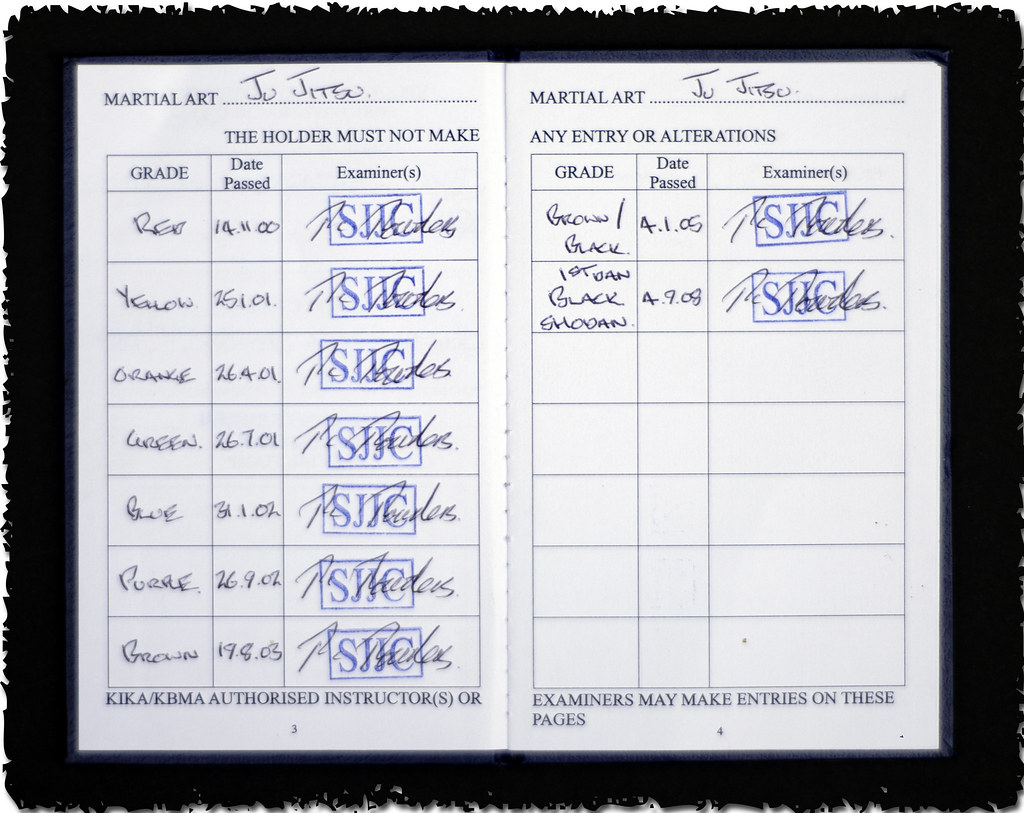 MARTIAL ART ........ JU JITSU.
THE HOLDER MUST NOT MAKE
GRADE Date Passed Examiner(s)
RED 14.11.00 SJJC
YELLOW 25.1.01. SJJC
ORANGE 26.4.01. SJJC
GREEN. 26.7.01 SJJC
BLUE 31.1.02 SJJC
PURPLE. 26.9.02 SJJC
BROWN 19.8.03 SJJC
KIKA/KBMA AUTHORISED INSTRUCTOR(S) OR
3
MARTIAL ART ........ JU JITSU.
ANY ENTRY OR ALTERATIONS
GRADE Date Passed Examiner(s)
BROWN/
BLACK. 4.1.05 SJJC
1ST DAN
BLACK 4.9.08 SJJC
SHODAN.
EXAMINERS MAY MAKE ENTRIES ON THESE
PAGES
4